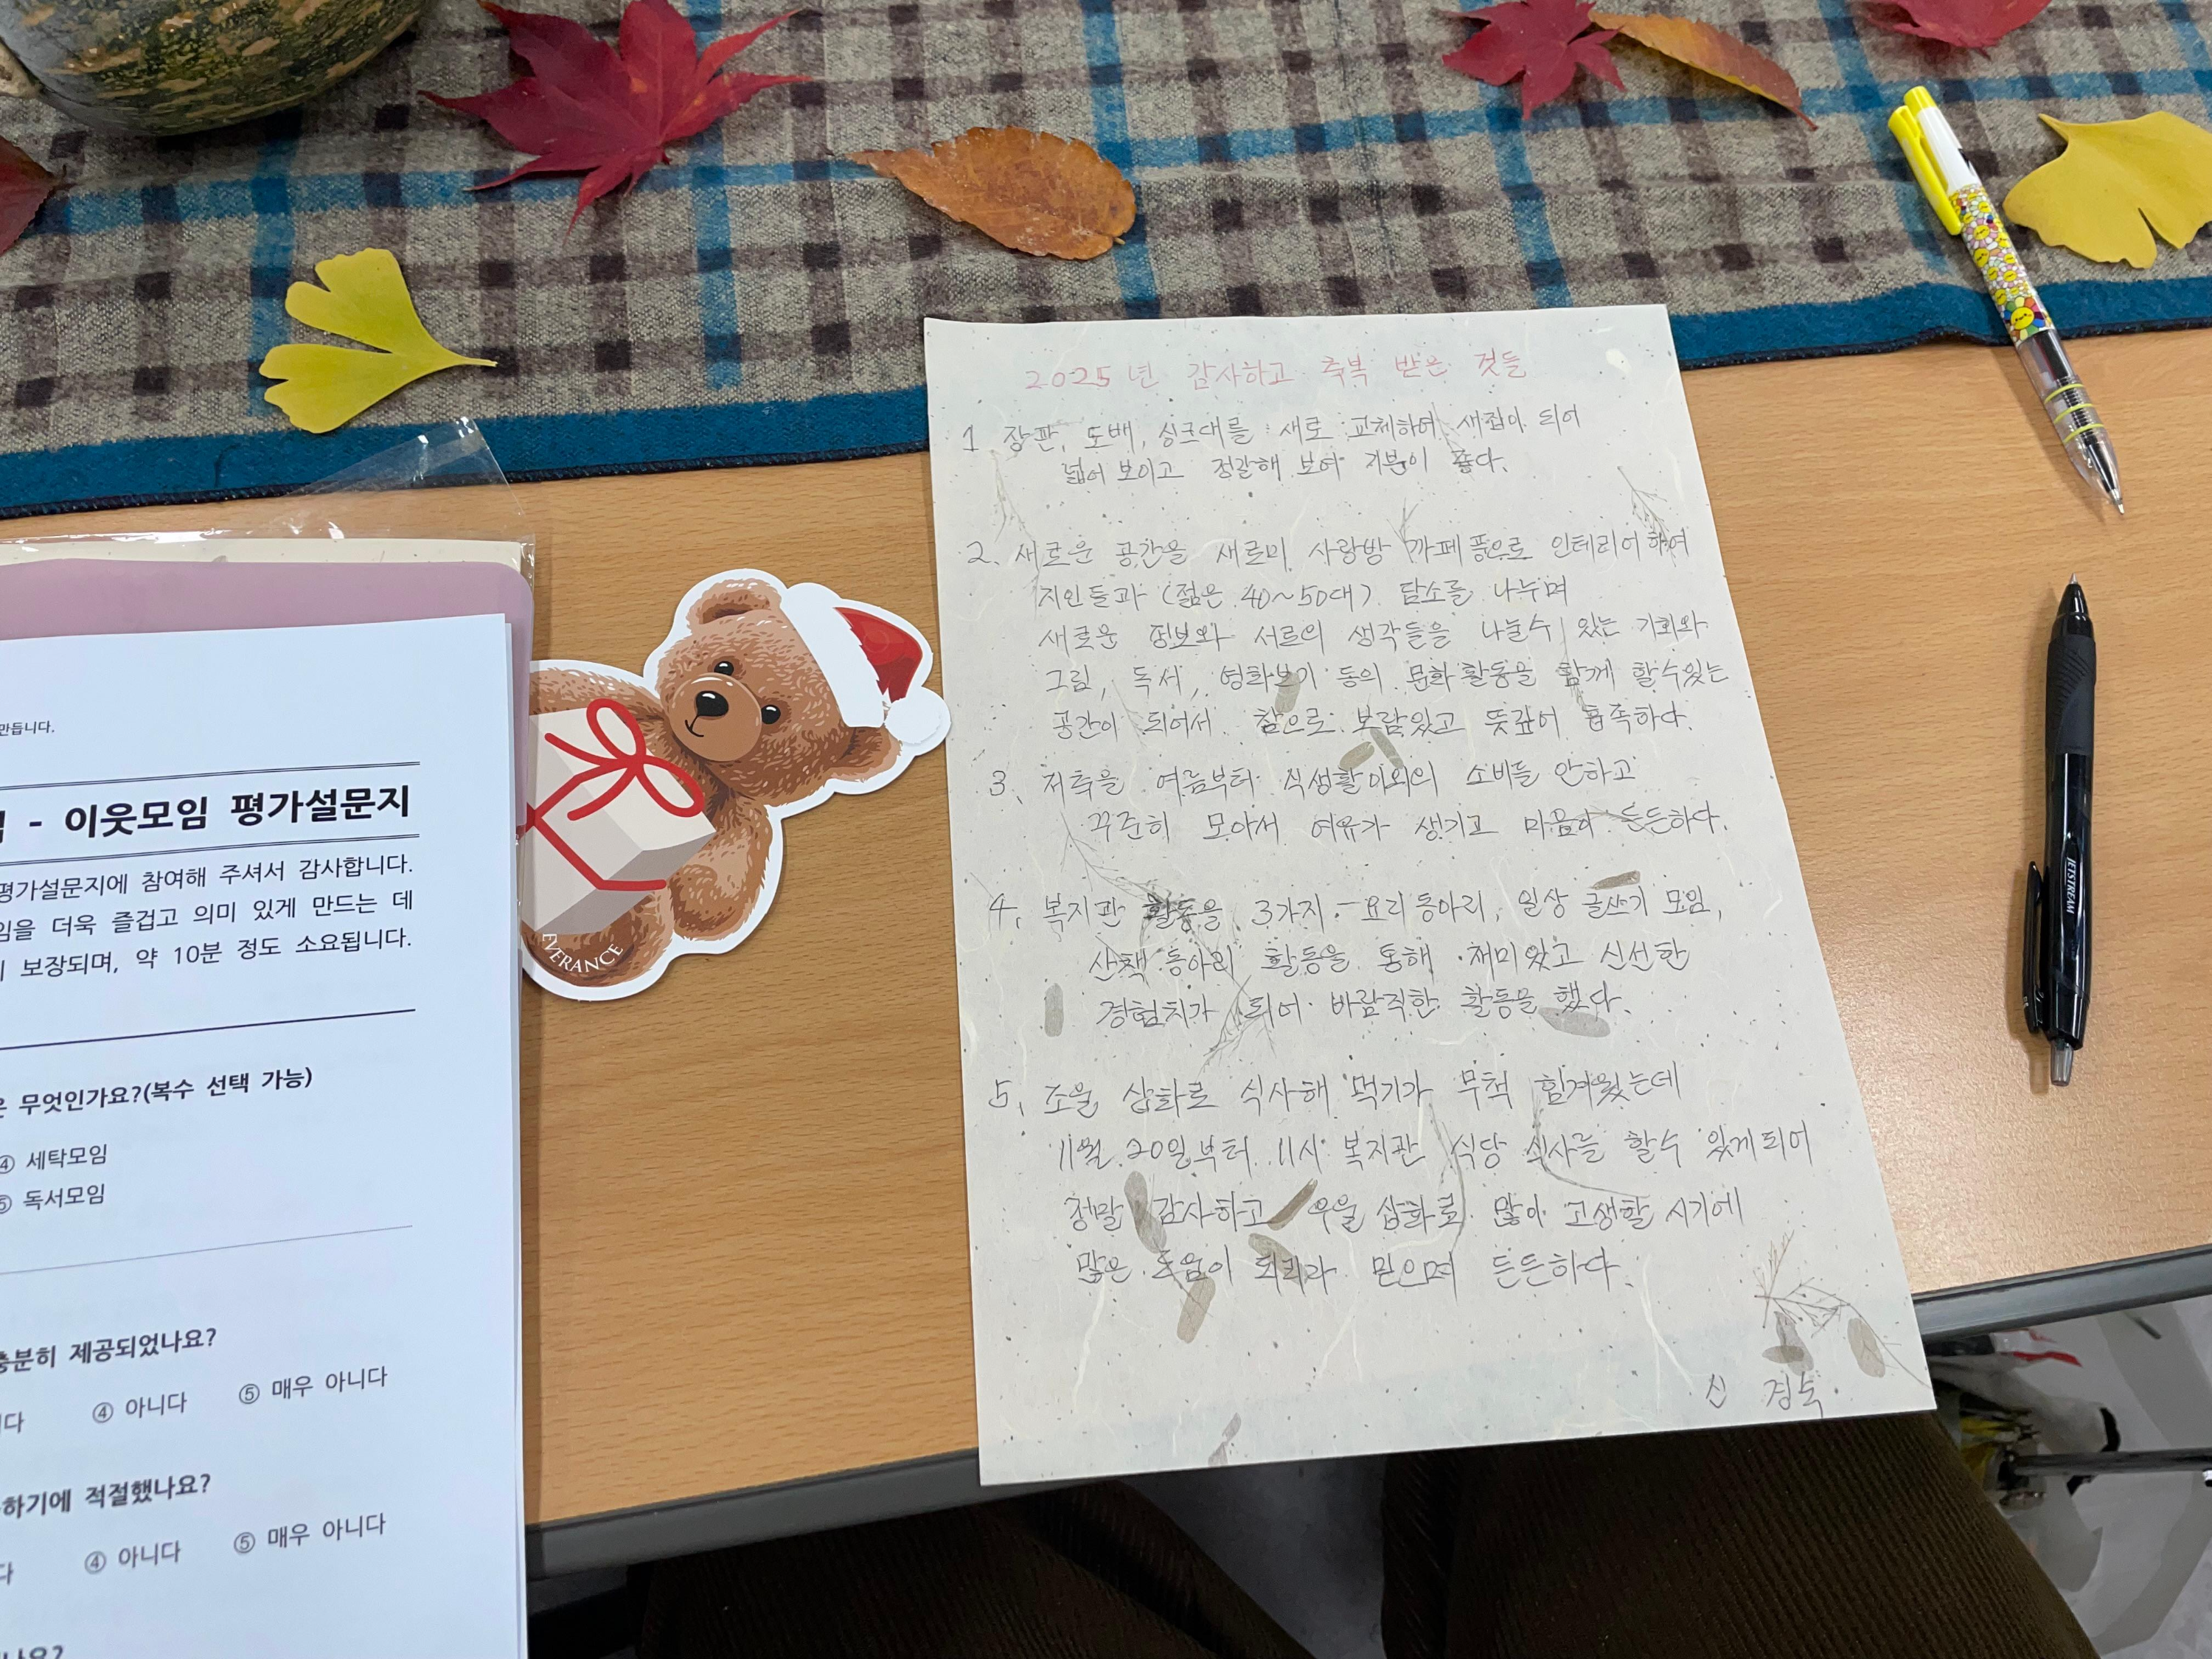 만듭니다.
- 이웃모임 평가설문지
평가설문지에 참여해 주셔서 감사합니다.
임을 더욱 즐겁고 의미 있게 만드는 데
보장되며, 약 10분 정도 소요됩니다.
은 무엇인가요?(복수 선택 가능)
④ 세탁모임
⑤ 독서모임
충분히 제공되었나요?
니다 ④ 아니다 ⑤ 매우 아니다
하기에 적절했나요?
다 ④ 아니다 ⑤ 매우 아니다
나요?
EVERANCE
2025년 감사하고 축복 받은 것들
1 장판, 도배, 싱크대를 새로 교체하여 새집이 되어
넓어 보이고 정갈해 보여 기분이 좋다.
2. 새로운 공간을 새로이 사랑방 까페풍으로 인테리어하여
지인들과 (젊은 40~50대) 담소를 나누며
새로운 정보와 서로의 생각들을 나눌수 있는 기회와
그림, 독서, 영화보기 등의 문화활동을 함께 할수있는
공간이 되어서 참으로 보람있고 뜻깊어 흡족하다.
3. 저축을 여름부터 식생활이외의 소비를 안하고
꾸준히 모아서 여유가 생기고 마음이 든든하다.
4. 복지관 활동을 3가지 - 요리동아리, 일상 글쓰기 모임,
산책 동아리 활동을 통해 재미있고 신선한
경험치가 되어 바람직한 활동을 했다.
5. 조울 삽화로 식사해 먹기가 무척 힘겨웠는데
11월 20일부터 11시 복지관 식당 식사를 할수 있게되어
정말 감사하고 우울 삽화로 많이 고생할 시기에
많은 도움이 되리라 믿으며 든든하다.
신 경숙
JETSTREAM